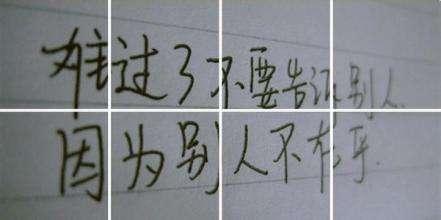 难过了不要告诉别人
因为别人不在乎.